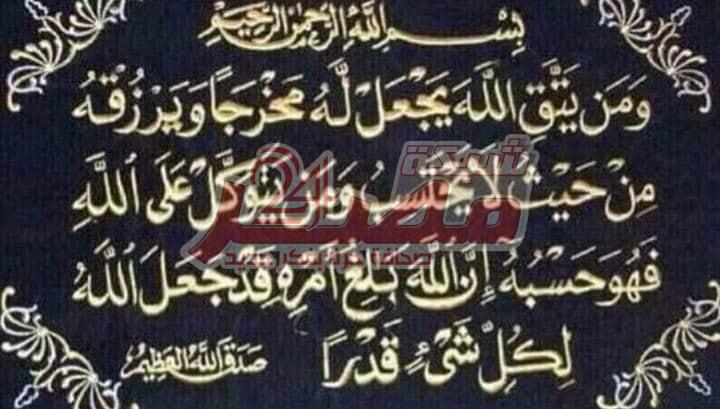 بِسْمِ اللَّهِ الرَّحْمَنِ الرَّحِيمِ
وَمَن يَتَّقِ اللَّهَ يَجْعَل لَّهُ مَخْرَجًا وَيَرْزُقْهُ
مِنْ حَيْثُ لَا يَحْتَسِبُ وَمَن يَتَوَكَّلْ عَلَى اللَّهِ
فَهُوَ حَسْبُهُ إِنَّ اللَّهَ بَالِغُ أَمْرِهِ قَدْ جَعَلَ اللَّهُ
لِكُلِّ شَيْءٍ قَدْرًا
صَدَقَ اللَّهُ الْعَظِيمُ
شبكة
مصر 24
صحافة حرة بفكر جديد